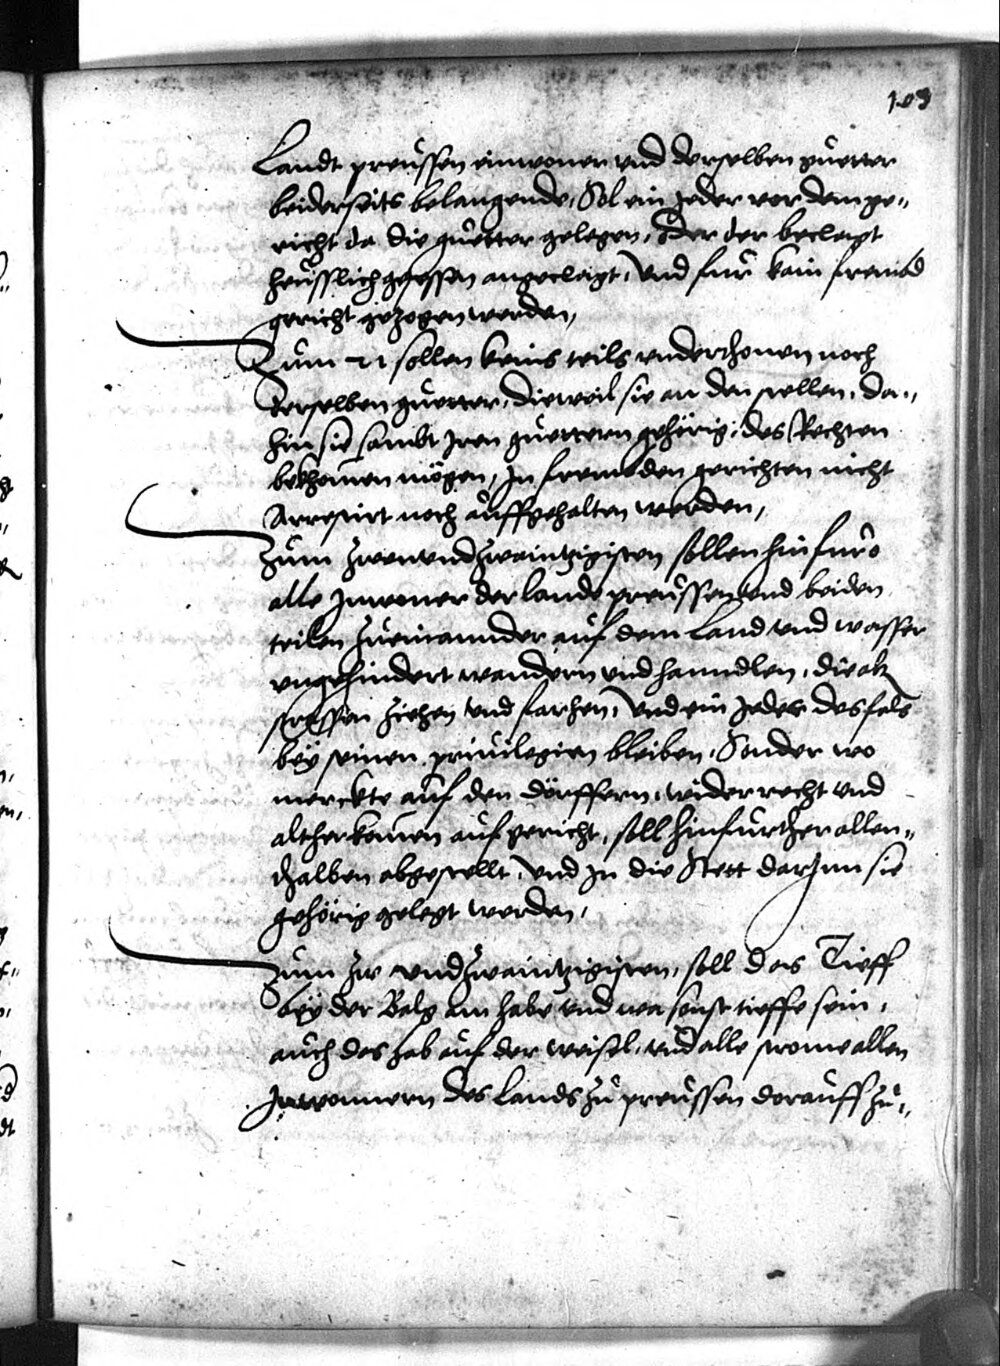 103
Landt preussen einwoner vnd derselben guetter
beiderseits belangende, Sol ein Jeder vor dem ge„
richt da die guetter gelegen, Oder der beclagt
heusslich gesessen angeclagt, Vnd fur kain frembd
gericht gezogen werden,
Zum 21 sollen keins teils vnderthonen noch
Derselben guetter, dieweil sie an den stellen, da„
hin sie sambt Iren guettern gehörig, des Rechten
bekhomen mögen, In frembden gerichten nicht
Arrestirt noch auffgehalten werden,
Zum zwenvndzwaintzigisten sollen hinfuro
alle Inwoner der lande preussen vnd beiden
teilen zueinannder auf dem Land vnd wasser
vngehindert wandern vnd hanndlen, die alt
strassen ziehen vnd farhen, Vnd ein Jeder desfals
bey seinen priuilegien bleiben, Sonder wo
merckte auf den dörffern, wider recht vnd
altherkomen aufgericht, soll hinfurther allen„
thalben abgestellt, Vnd In die Stett darJnn sie
gehörig gelegt werden,
Zum vndzwaintzigisten, soll das Tieff
bey der Balg am habe vnd wa sonst tieffe sein,
auch das hab auf der weisel, vnd alle strome allen
Inwonnern des Lands zu preussen dorauff zu„